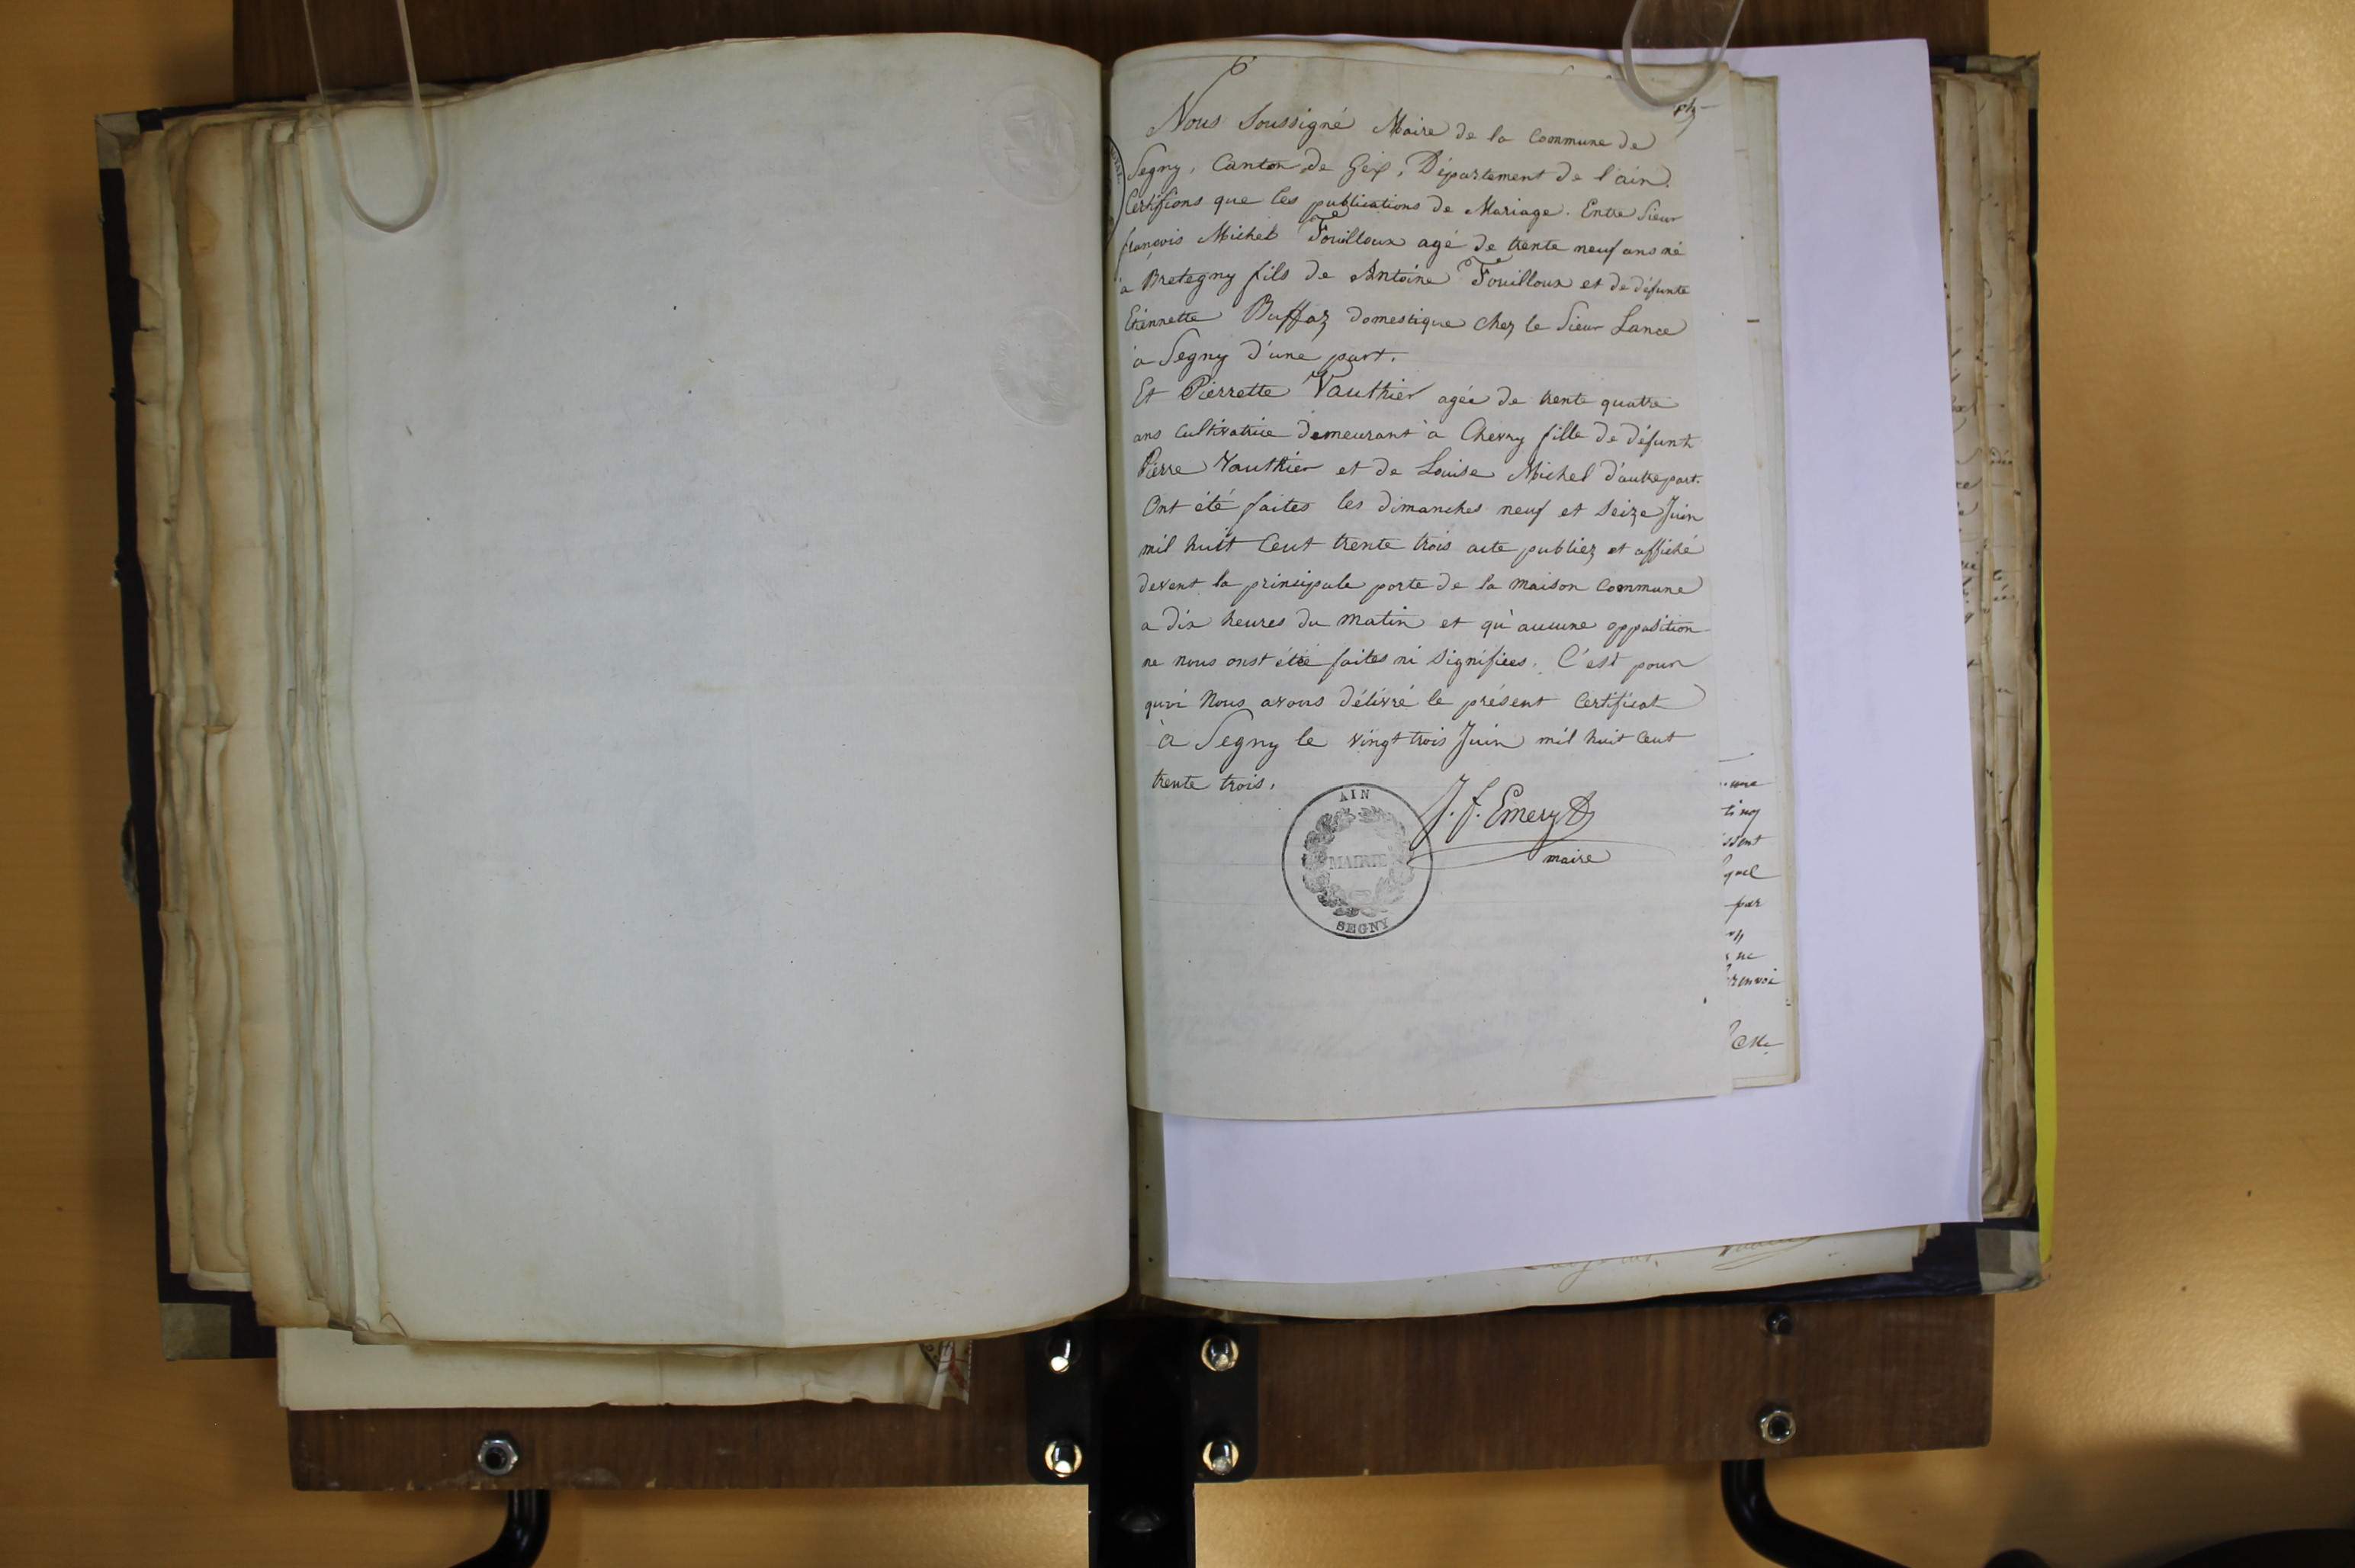 6
Nous Soussigné Maire de la Commune de
Segny, Canton de Gex, Département de l'ain.
Certifions que les publications de Mariage. Entre Sieur
françois Michel Fouilloux agé de trente neuf ans né
à Bretegny fils de Antoine Fouilloux et de défunte
Etiennette Buffaz domestique chez le Sieur Lance
à Segny d'une part.
Et Pierrette Vauthier agée de trente quatre
ans Cultivatrice demeurant à Chevry fille de défunt
Pierre Vauthier et de Louise Michel d'autre part.
Ont été faites les dimanches neuf et Seize Juin
mil huit Cent trente trois acte publiez et affiché
devent la principale porte de la maison Commune
a dix heures du matin et qu'aucune opposition
ne nous onst été faites ni signifiées. C'est pour
quoi Nous avons délivré le présent Certificat
à Segny le vingt trois Juin mil huit Cent
trente trois.
J. f. Emery
maire
AIN
MAIRIE
SEGNY
quel
par
ne
renvoi